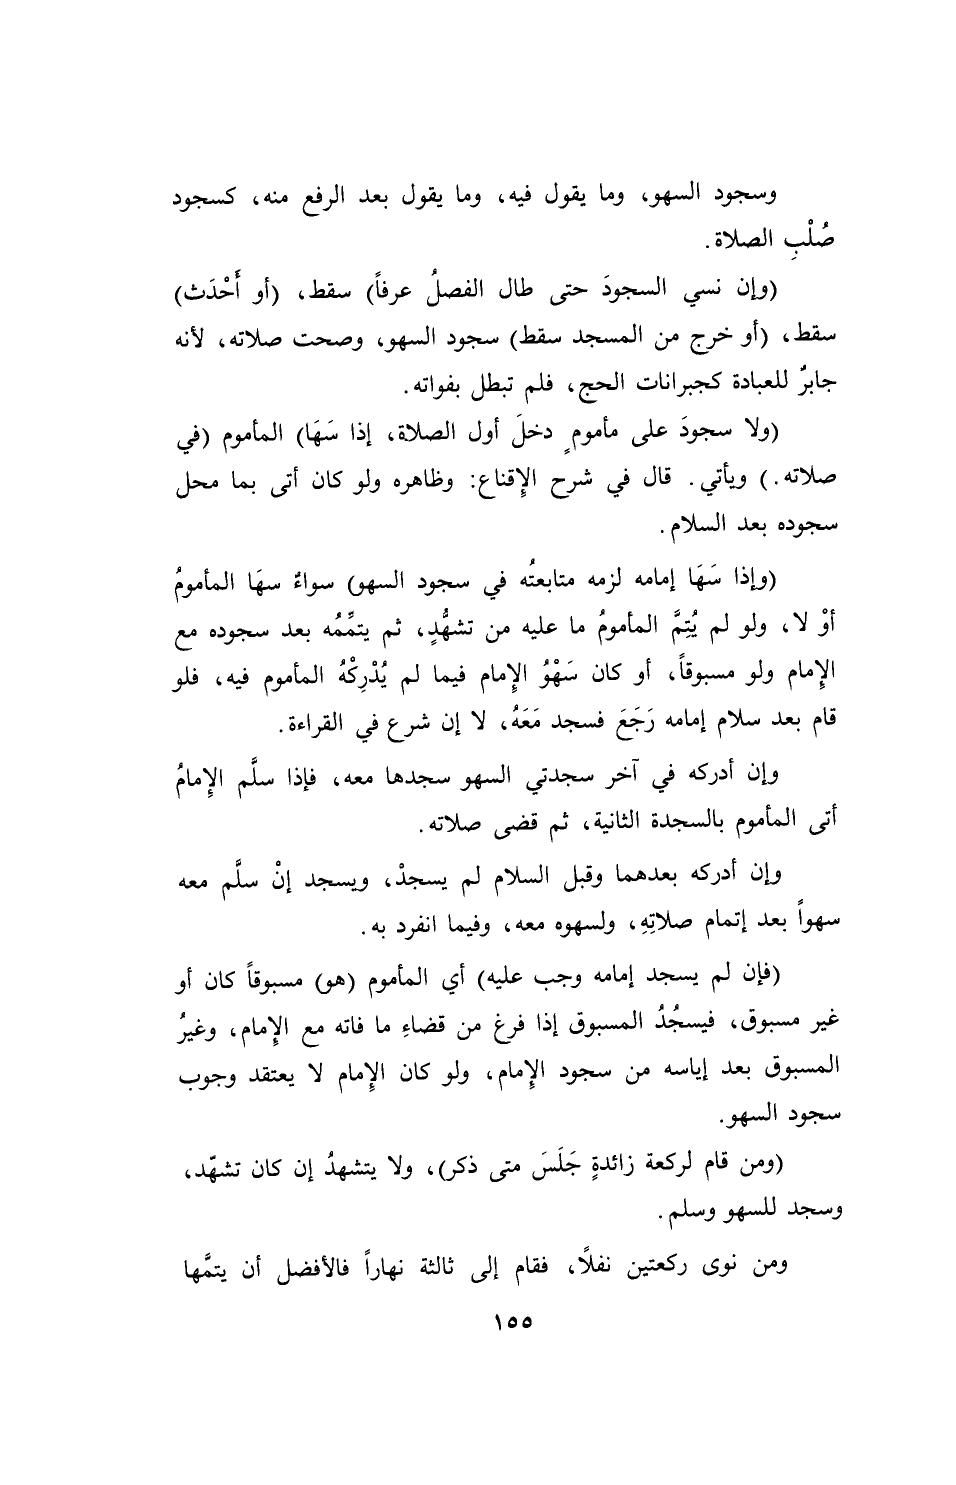 وسجود السهو، وما يقول فيه، وما يقول بعد الرفع منه، كسجود
صُلْبِ الصلاة.
(وإن نسي السجودَ حتى طال الفصلُ عرفاً) سقط، (أو أَحْدَث)
سقط، (أو خرج من المسجد سقط) سجود السهو، وصحت صلاته، لأنه
جابرٌ للعبادة كجبرانات الحج، فلم تبطل بفواته.
(ولا سجودَ على مأمومٍ دخلَ أول الصلاة، إذا سَهَا) المأموم (في
صلاته.) ويأتي. قال في شرح الإِقناع: وظاهره ولو كان أتى بما محل
سجوده بعد السلام.
(وإذا سَهَا إمامه لزمه متابعتُه في سجود السهو) سواءٌ سهَا المأمومُ
أوْ لا، ولو لم يُتِمَّ المأمومُ ما عليه من تشهُّدٍ، ثم يتمِّمُه بعد سجوده مع
الإِمام ولو مسبوقاً، أو كان سَهْوُ الإِمام فيما لم يُدْرِكْهُ المأموم فيه، فلو
قام بعد سلام إمامه رَجَعَ فسجد مَعَهُ، لا إن شرع في القراءة.
وإن أدركه في آخر سجدتي السهو سجدها معه، فإذا سلَّم الإِمامُ
أتى المأموم بالسجدة الثانية، ثم قضى صلاته.
وإن أدركه بعدهما وقبل السلام لم يسجدْ، ويسجد إنْ سلَّم معه
سهواً بعد إتمام صلاتِهِ، ولسهوه معه، وفيما انفرد به.
(فإن لم يسجد إمامه وجب عليه) أي المأموم (هو) مسبوقاً كان أو
غير مسبوق، فيسجُدُ المسبوق إذا فرغ من قضاءِ ما فاته مع الإِمام، وغيرُ
المسبوق بعد إياسه من سجود الإِمام، ولو كان الإِمام لا يعتقد وجوب
سجود السهو.
(ومن قام لركعة زائدةٍ جَلَسَ متى ذكر)، ولا يتشهدُ إن كان تشهّد،
وسجد للسهو وسلم.
ومن نوى ركعتين نفلًا، فقام إلى ثالثة نهاراً فالأفضل أن يتمَّها
١٥٥